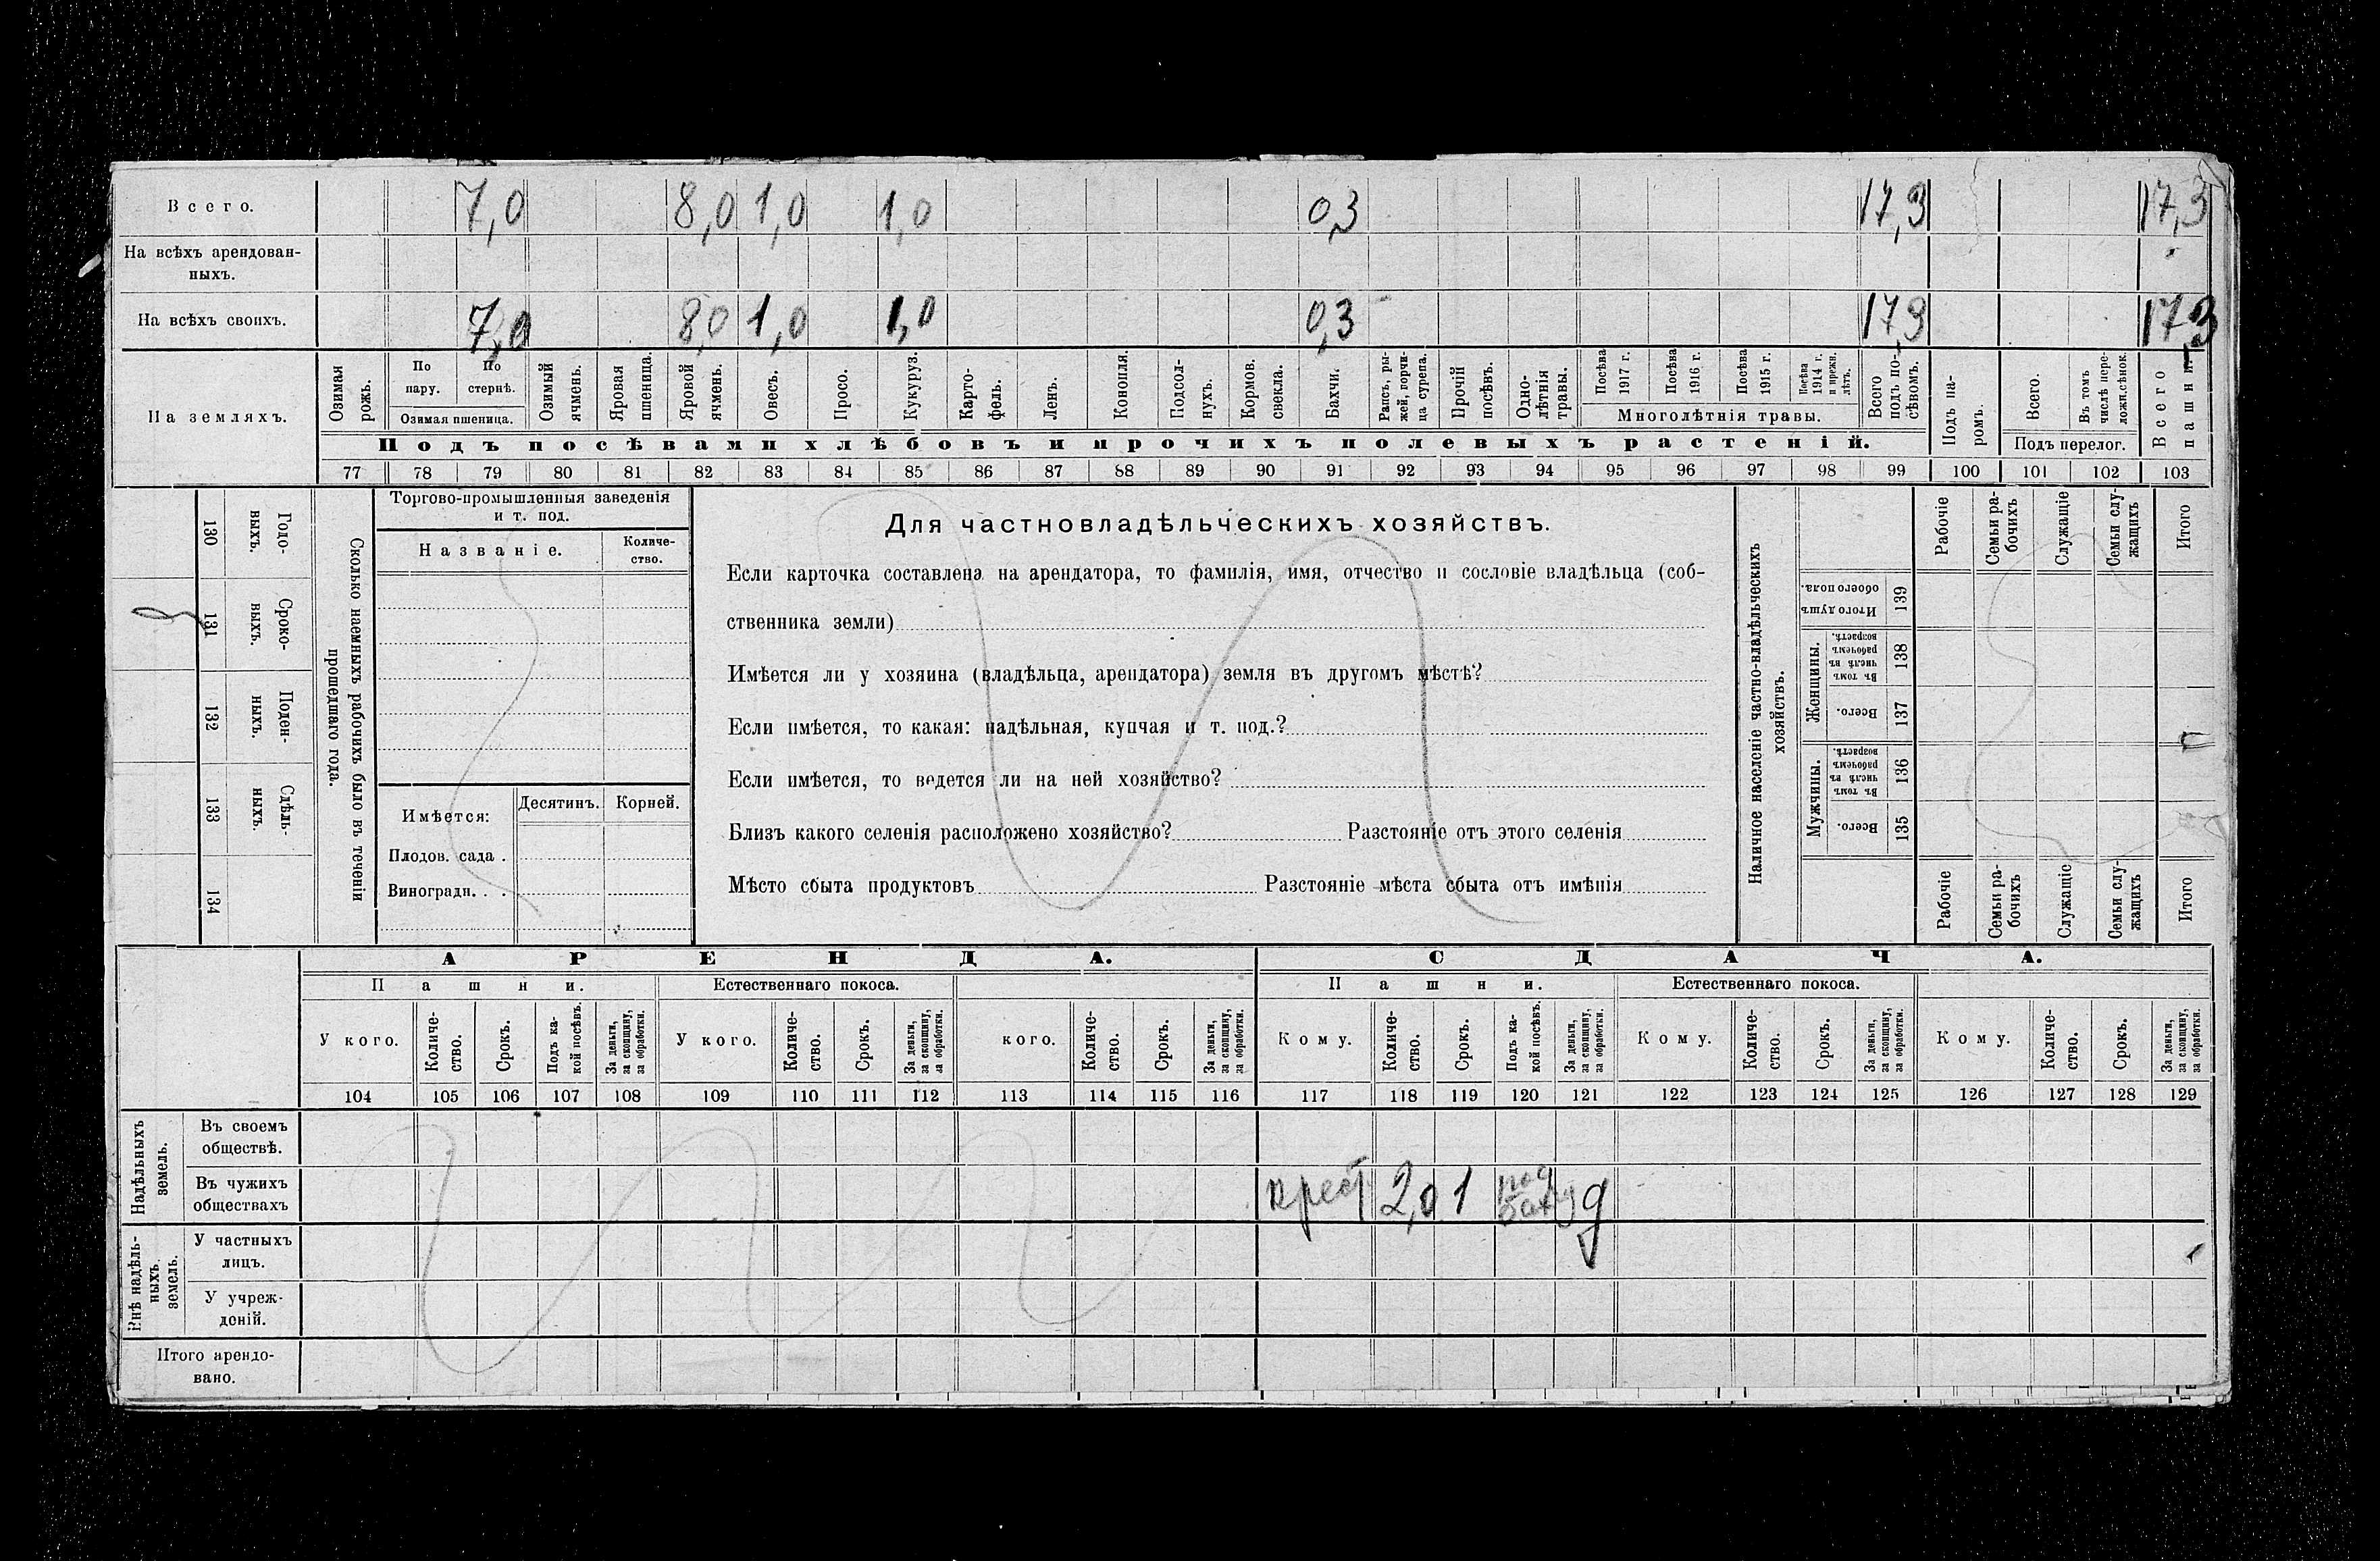 Всего. 7,0 8,0 1,0 1,0 0,3 17,3 17,3
На всѣхъ арендован-
ныхъ.
На всѣхъ своихъ. 7,0 8,0 1,0 1,0 0,3 17,3 17,3
На земляхъ.
Озимая рожь.
По пару.
По стернѣ.
Озимая пшеница.
Озимый ячмень.
Яровая пшеница.
Яровой ячмень.
Овесъ.
Просо.
Кукуруз.
Карто-
фель.
Ленъ.
Конопля.
Подсол-
нухъ.
Кормов.
свекла.
Бахчи.
Рапсъ, ры-
жей, горчи-
ца сурепа.
Прочій
посѣвъ.
Одно-
лѣтнія
травы.
Посѣва
1917 г.
Посѣва
1916 г.
Посѣва
1915 г.
Посѣва
1914 г.
и прежн.
лѣтъ.
Многолѣтнія травы.
Всего
подъ по-
сѣвомъ.
Подъ па-
ромъ.
Всего.
Въ томъ
числѣ пере-
ложн. сѣнок.
Подъ перелог.
Всего
пашни.
Подъ посѣвами хлѣбовъ и прочихъ полевыхъ растеній.
77 78 79 80 81 82 83 84 85 86 87 88 89 90 91 92 93 94 95 96 97 98 99 100 101 102 103
130 131 132 133 134
Годо-
выхъ.
Сроко-
выхъ.
Поден-
ныхъ.
Сдѣль-
ныхъ.
Сколько наемныхъ рабочихъ было въ теченіи
прошедшаго года.
Торгово-промышленныя заведенія
и т. под.
Названіе.
Количе-
ство.
Имѣется:
Десятинъ. Корней.
Плодов. сада .
Виноградн. . .
Для частновладѣльческихъ хозяйствъ.
Если карточка составлена на арендатора, то фамилія, имя, отчество и сословіе владѣльца (соб-
ственника земли)
Имѣется ли у хозяина (владѣльца, арендатора) земля въ другомъ мѣстѣ?
Если имѣется, то какая: надѣльная, купчая и т. под.?
Если имѣется, то ведется ли на ней хозяйство?
Близъ какого селенія расположено хозяйство? Разстояніе отъ этого селенія
Мѣсто сбыта продуктовъ Разстояніе мѣста сбыта отъ имѣнія
Наличное населеніе частно-владѣльческихъ
хозяйствъ.
Рабочіе
Семьи ра-
бочихъ
Служащіе
Семьи слу-
жащихъ
Итого
Итого душъ
обоего пола.
139
Женщины.
Въ томъ
числѣ въ
рабочемъ
возрастѣ.
138
Всего.
137
Мужчины.
Въ томъ
числѣ въ
рабочемъ
возрастѣ.
136
Всего.
135
Рабочіе
Семьи ра-
бочихъ
Служащіе
Семьи слу-
жащихъ
Итого
АРЕНДА. СДАЧА.
Пашни. Естественнаго покоса. Пашни. Естественнаго покоса.
У кого.
Количе-
ство.
Срокъ.
Подъ ка-
кой посѣвъ.
За деньги,
за скопщину,
за обработки.
У кого.
Количе-
ство.
Срокъ.
За деньги,
за скопщину,
за обработки.
кого.
Количе-
ство.
Срокъ.
За деньги,
за скопщину,
за обработки.
Кому.
Количе-
ство.
Срокъ.
Подъ ка-
кой посѣвъ.
За деньги,
за скопщину,
за обработки.
Кому.
Количе-
ство.
Срокъ.
За деньги,
за скопщину,
за обработки.
Кому.
Количе-
ство.
Срокъ.
За деньги,
за скопщину,
за обработки.
104 105 106 107 108 109 110 111 112 113 114 115 116 117 118 119 120 121 122 123 124 125 126 127 128 129
Надѣльныхъ
земель.
Въ своемъ
обществѣ.
Въ чужихъ
обществахъ
крест 2,0 1 под д
Внѣ надѣль-
ныхъ
земель.
У частныхъ
лицъ.
У учреж-
деній.
Итого арендо-
вано.